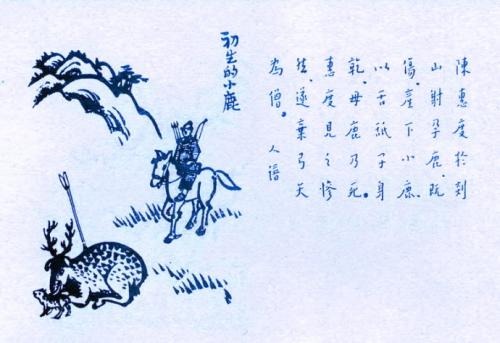 初生的小鹿
陳惠度於剡
山射孕鹿、既
傷、產下小鹿、
以舌舐子身
乾、母鹿乃死。
惠度見之慘
然、遂棄弓矢
為僧。 人譜